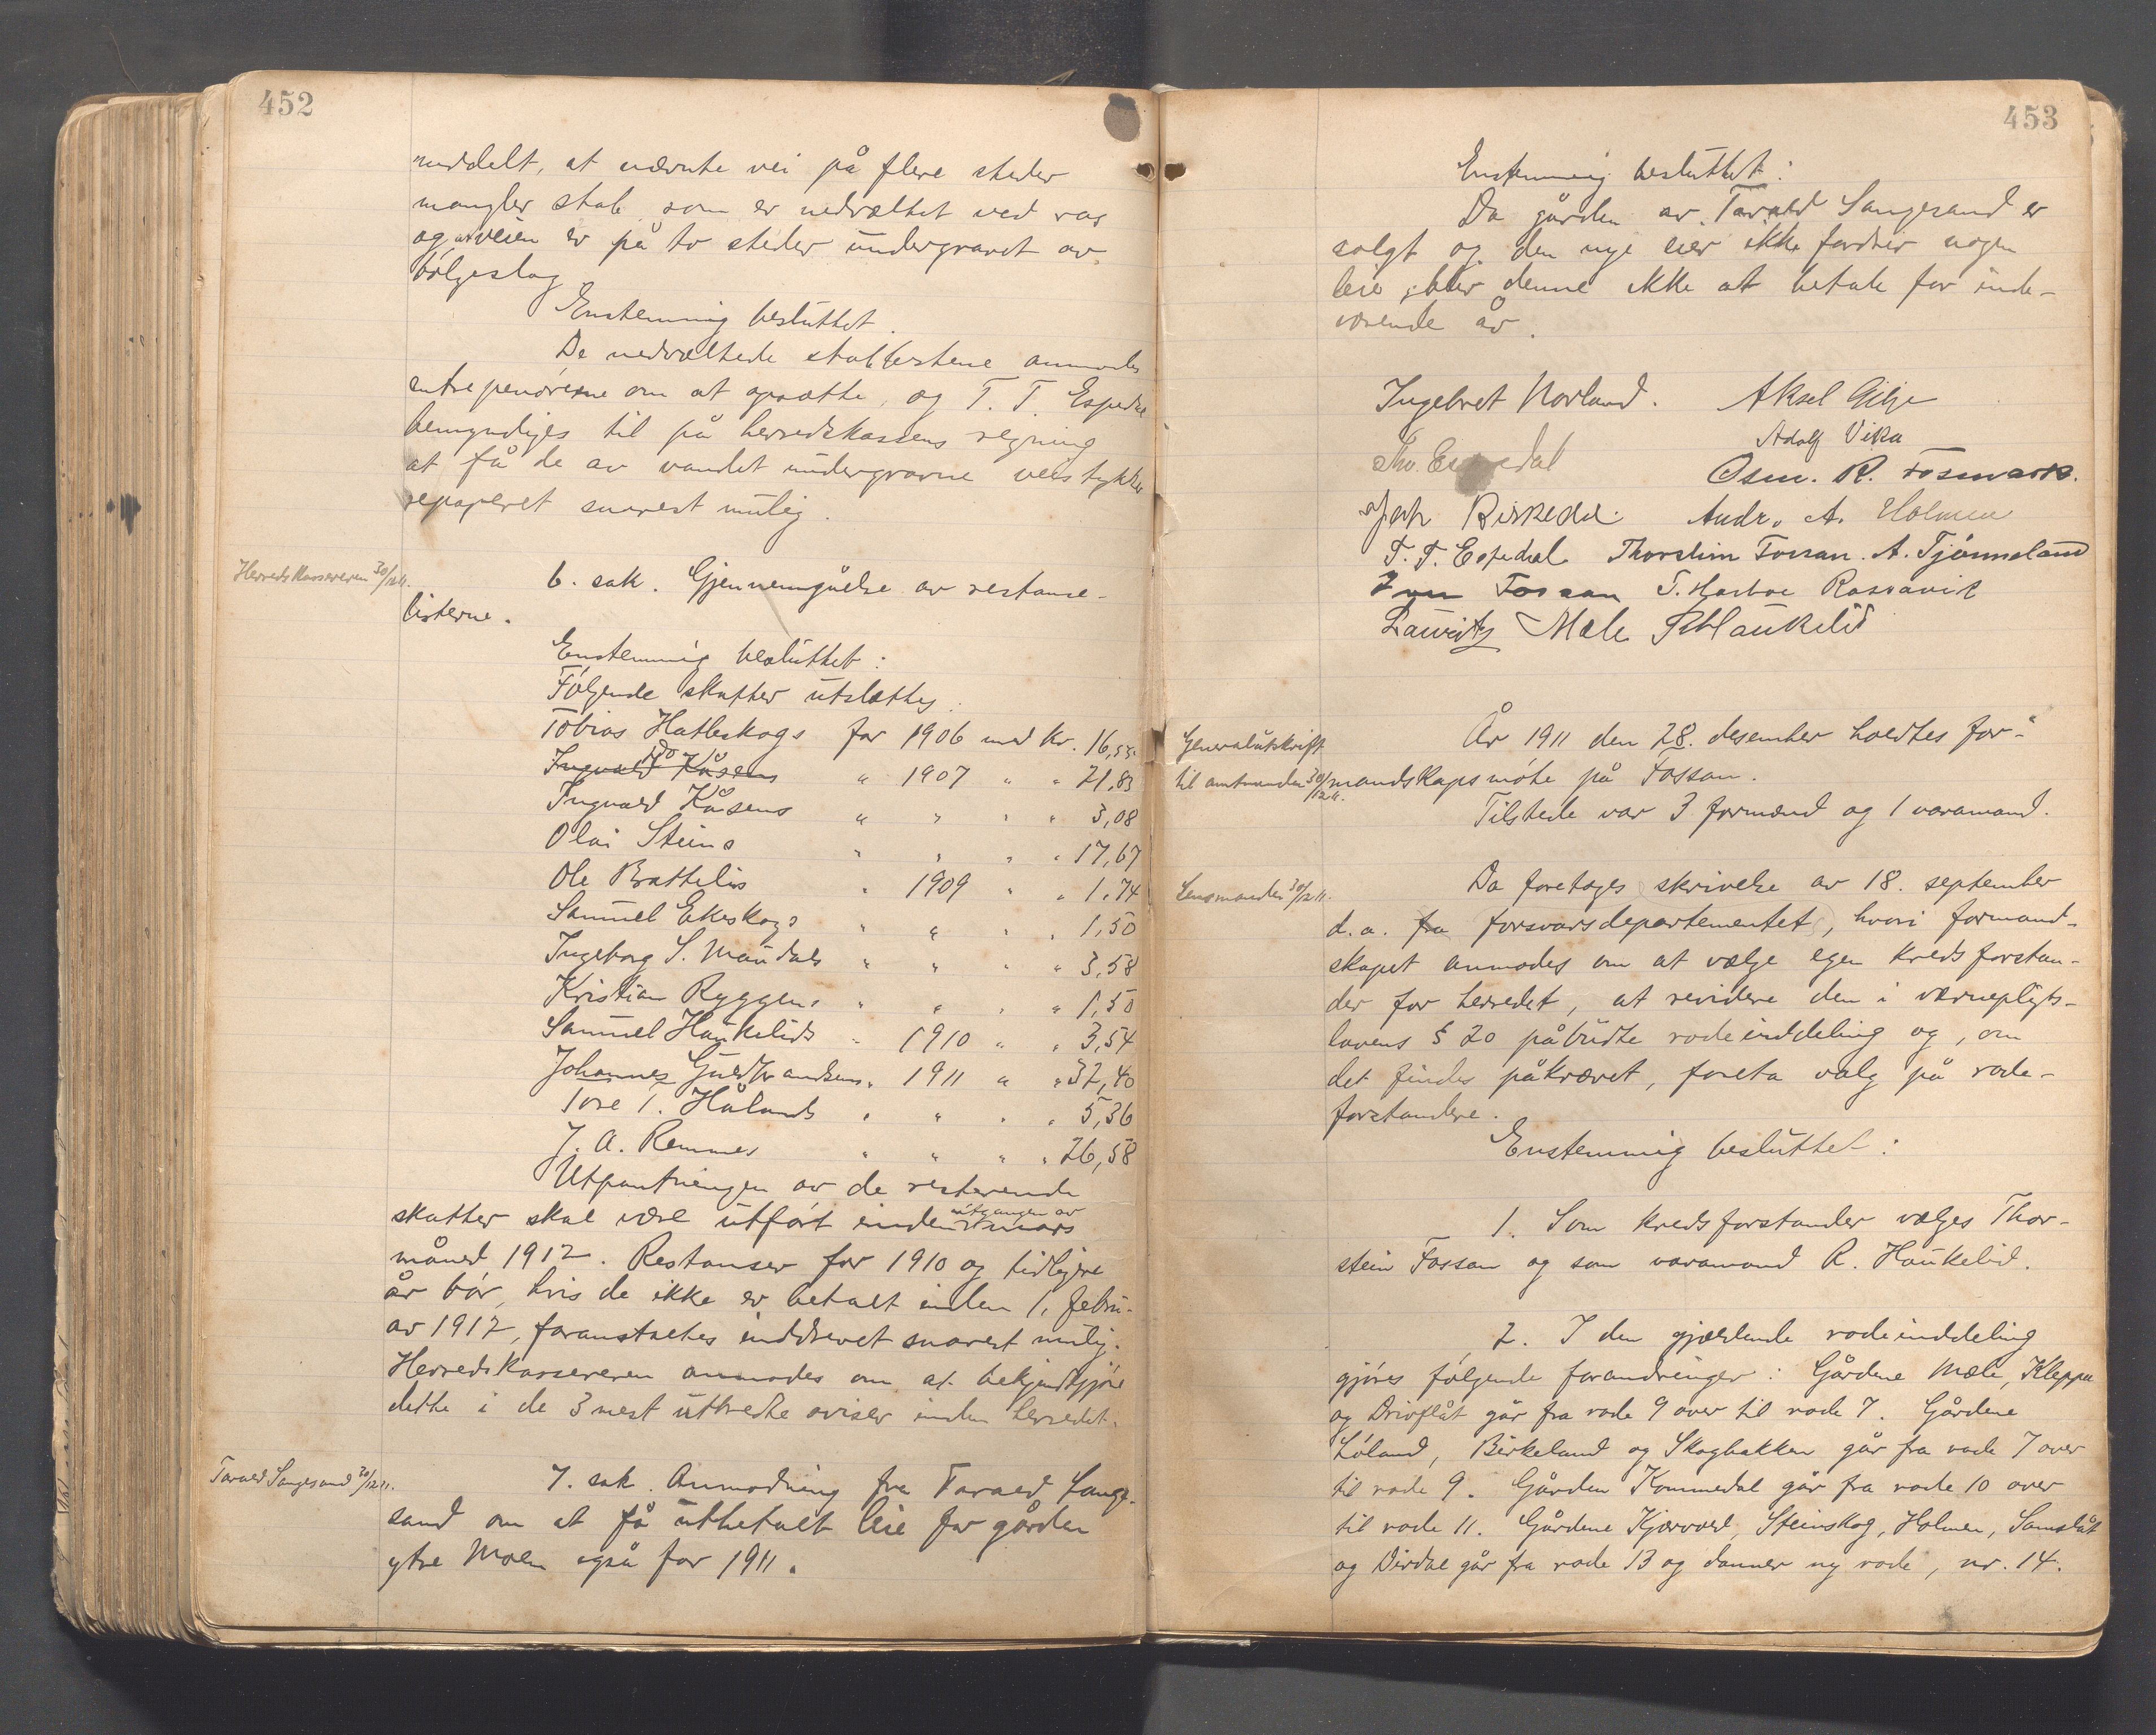 452
meddelt, at nævnte vei på flere steder
mangler stab som er nedvæltet ved ras
og at veien er på to steder undergravet av
bølgeslag
Enstemmig besluttet.
De nedvæltede stabbestene anmodes
entreprenørerne om at opsætte, og T. T. Espedal
bemyndiges til på herredskassens regning
at få de av vandet undergravne veistykker
reparert snarest mulig.
Herredskassereren 30/12 11.
6. sak. Gjennemgåelse av restanse-
listerne.
Enstemmig besluttet:
Følgende skatter utslættes:
Tobias Hatleskogs for 1906 med kr. 16,55
Ingvald Kåsens Do " 1907 " " 21,83
Ingvald Kåsens " " " " 3,08
Olai Steins " " " " 17,67
Ole Brattelis " 1909 " " 1,74
Samuel Ekeskogs " " " " 1,50
Ingeborg S. Maudals " " " " 3,58
Kristian Ryggens " " " " 1,50
Samuel Haukelids " 1910 " " 3,54
Johannes Guldbrandsens " 1911 " " 32,40
Tore T. Hålands " " " " 5,36
J. A. Remmes " " " " 26,58
Utpantningen av de resterende
skatter skal være utført inden utgangen av mars
måned 1912. Restanser for 1910 og tidligere
år bør, hvis de ikke er betalt inden 1. febru-
ar 1912, foranstaltes inddrevet snarest mulig.
Herredskassereren anmodes om at bekjendtgjøre
dette i de 3 mest utbredte aviser inden herredet.
Tarald Sangesand 30/12 11.
7. sak. Anmodning fra Tarald Sange-
sand om at få utbetalt leie for gården
ytre Moen også for 1911.
453
Enstemmig besluttet:
Da gården av Tarald Sangesand er
solgt og den nye eier ikke fordrer nogen
leie, blir denne ikke at betale for inde-
værende år.
Ingebret Norland. Aksel Gilje
Adolf Vika
Thv. Espedal
Osm. R. Fosmark.
Birkedal. Andr. A. Holmen
T. T. Espedal Thorstein Fossan. A. Tjønneland
Fossan T. Hasboe Rossavik
Lauritz Mæle R Haukelid
Generalutskrift
til amtmanden 30/12 11.
År 1911 den 28. desember holdtes for-
mandskapsmøte på Fossan.
Tilstede var 3 formænd og 1 varamand.
Lensmanden 30/12 11.
Da foretages skrivelse av 18. september
d.a. fra forsvarsdepartementet, hvori formand-
skapet anmodes om at vælge egen kredsforstan-
der for herredet, at revidere den i værnepligts-
lovens § 20 påbudte rodeinddeling og, om
det findes påkrævet, foreta valg på rode-
forstandere.
Enstemmig besluttet:
1. Som kredsforstander vælges Thor-
stein Fossan og som varamand R. Haukelid.
2. I den gjældende rodeinddeling
gjøres følgende forandringer: Gårdene Mæle, Kleppa
og Drivflåt går fra rode 9 over til rode 7. Gårdene
Løland, Birkeland og Skogbakken går fra rode 7 over
til rode 9. Gården Kommedal går fra rode 10 over
til rode 11. Gårdene Kjærvold, Steinskog, Holmen, Samslåt
og Dirdal går fra rode 13 og danner ny rode, nr. 14.